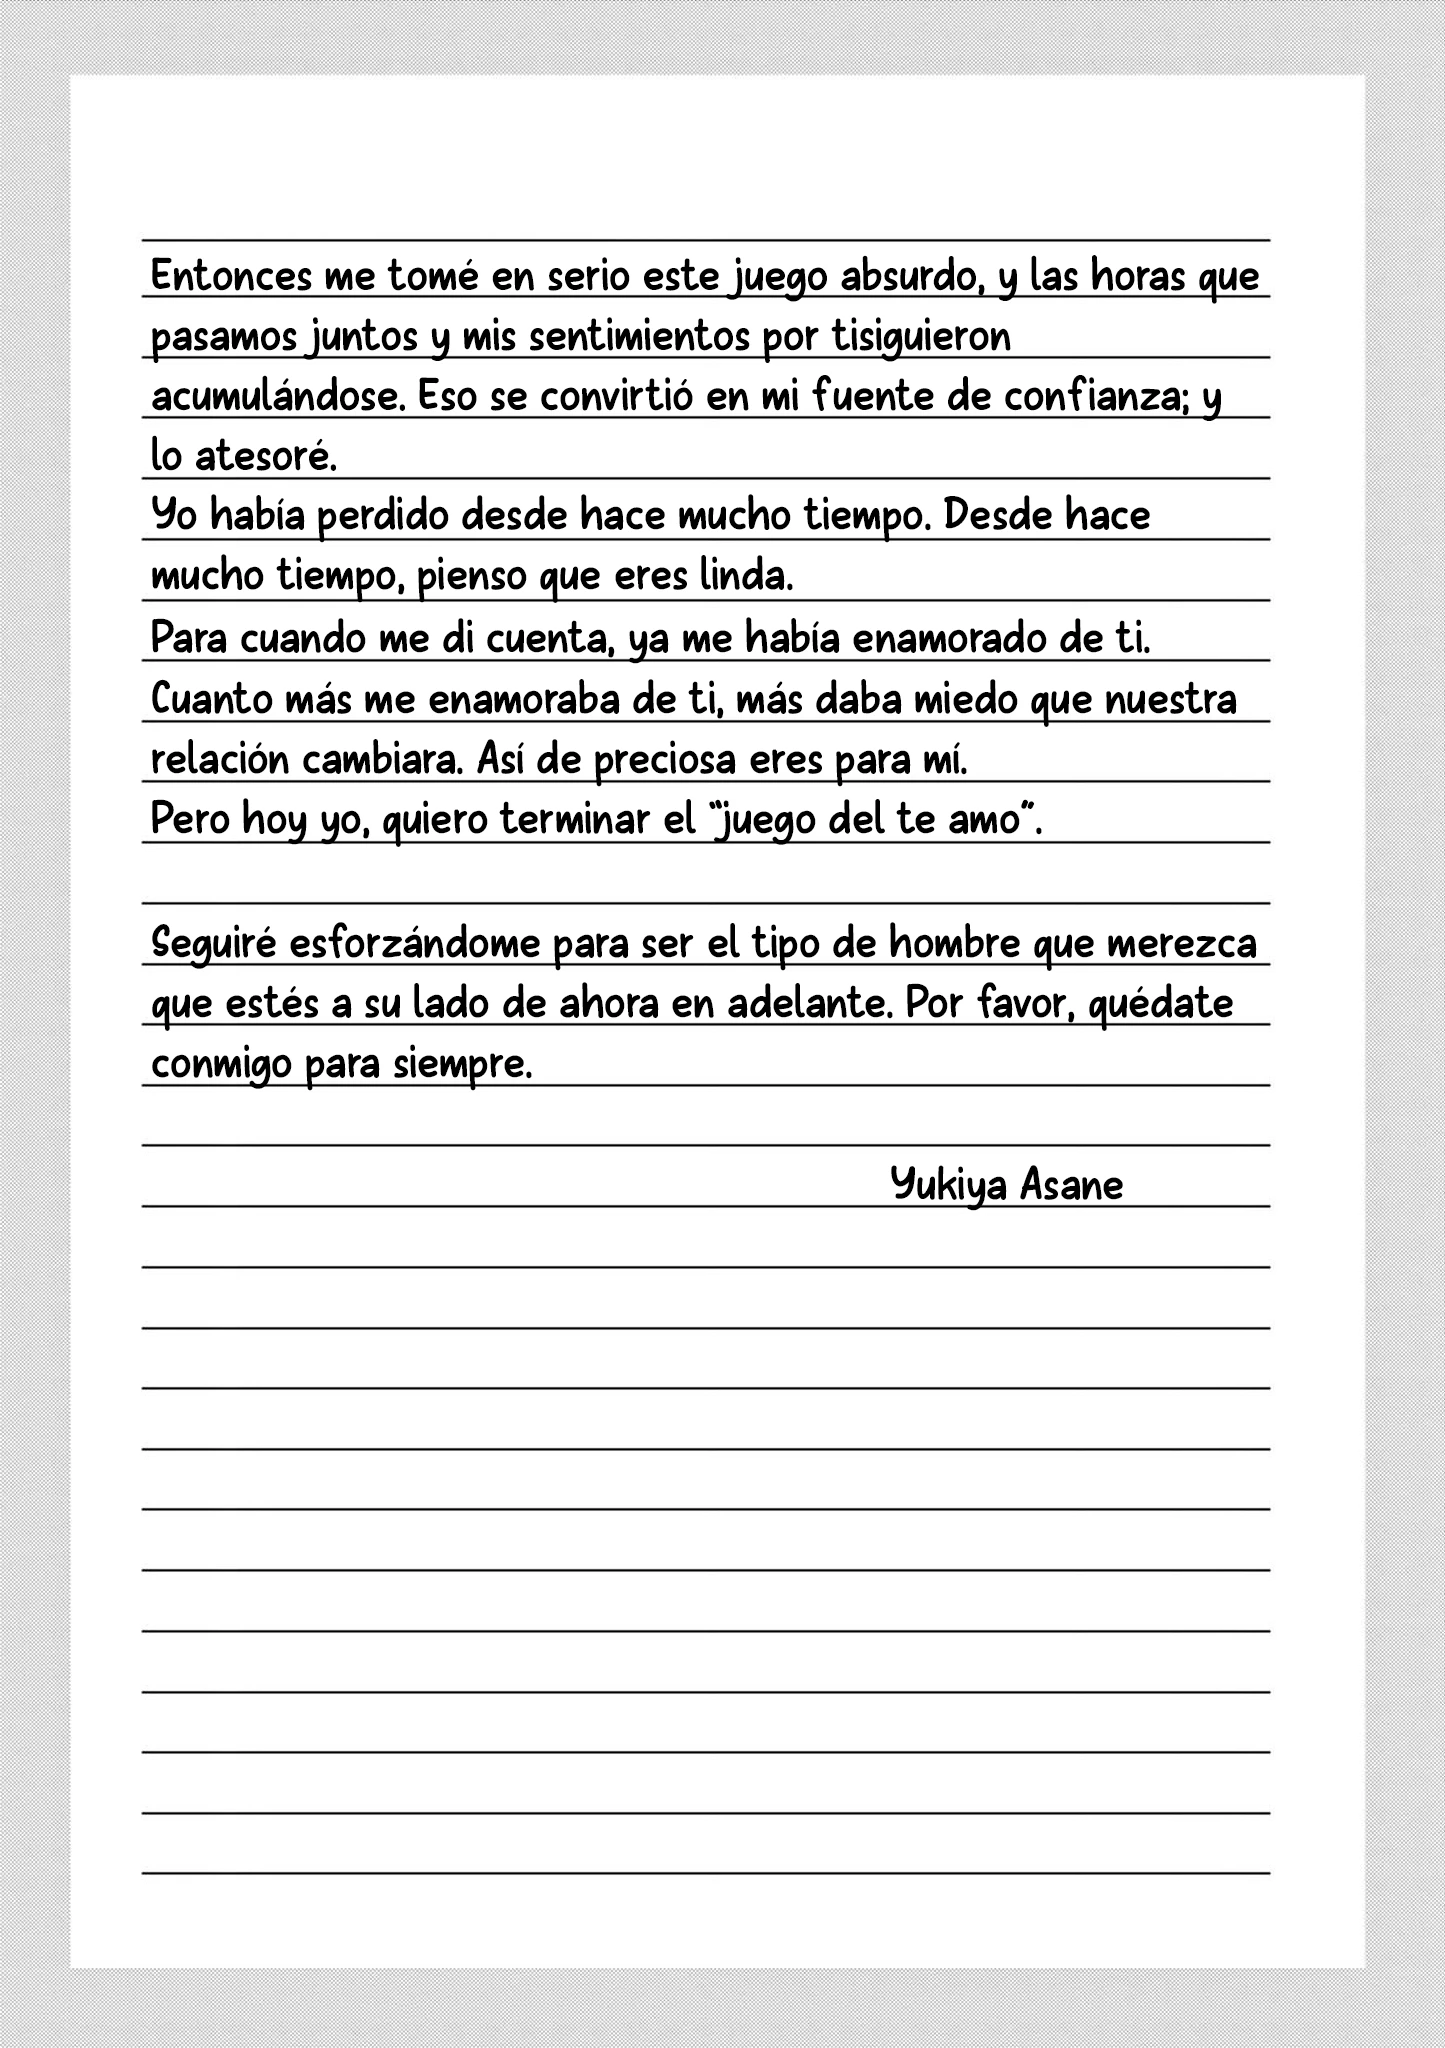 Entonces me tomé en serio este juego absurdo, y las horas que
pasamos juntos y mis sentimientos por tisiguieron
acumulándose. Eso se convirtió en mi fuente de confianza; y
lo atesoré.
Yo había perdido desde hace mucho tiempo. Desde hace
mucho tiempo, pienso que eres linda.
Para cuando me di cuenta, ya me había enamorado de ti.
Cuanto más me enamoraba de ti, más daba miedo que nuestra
relación cambiara. Así de preciosa eres para mí.
Pero hoy yo, quiero terminar el "juego del te amo".
Seguiré esforzándome para ser el tipo de hombre que merezca
que estés a su lado de ahora en adelante. Por favor, quédate
conmigo para siempre.
Yukiya Asane